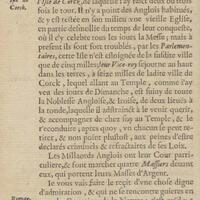 l'Isle de Corck, de laquelle j'ay
fois l'ã. Il n'y a point des Anglois habitués,
& y est restée en son milieu une vieille Eglise,
en partie desmolie du temps de leur conqueste,
où il s'y celebre tous les iours la Messe; mais à
present ils sont fort troublés, par les Parlemen-
taires, cette Isle n'est esloignée de la susdite ville
que de cinq milles; leur Vice-roy sejournoit au haut
dans les terres, à seize milles de ladite ville de
Corck, lequel allant au Temple, comme j'ay
veu des iours de Dimanche, est suiuy de toute
la Noblesse Angloise, & Iroise, de deux lieuës à
la ronde, laquelle il adstrainct à le venir querir,
& accompagner de chez soy au Temple, & le
r'econduire, apres quoy, un chacun se peut reti-
rer, & non plustost, aux peines d'estre
declarés criminels & refractaires de ses Loix.
Les Millaords Anglois ont leur Cour parti-
culiere, & font marcher quatre Massiers deuant
eux, qui portent leurs Masses d'Argent.
Ie vous vais faire le reçit d'une chose digne
d'admiration, & qui ne se rencontre guieres en
de Corck.